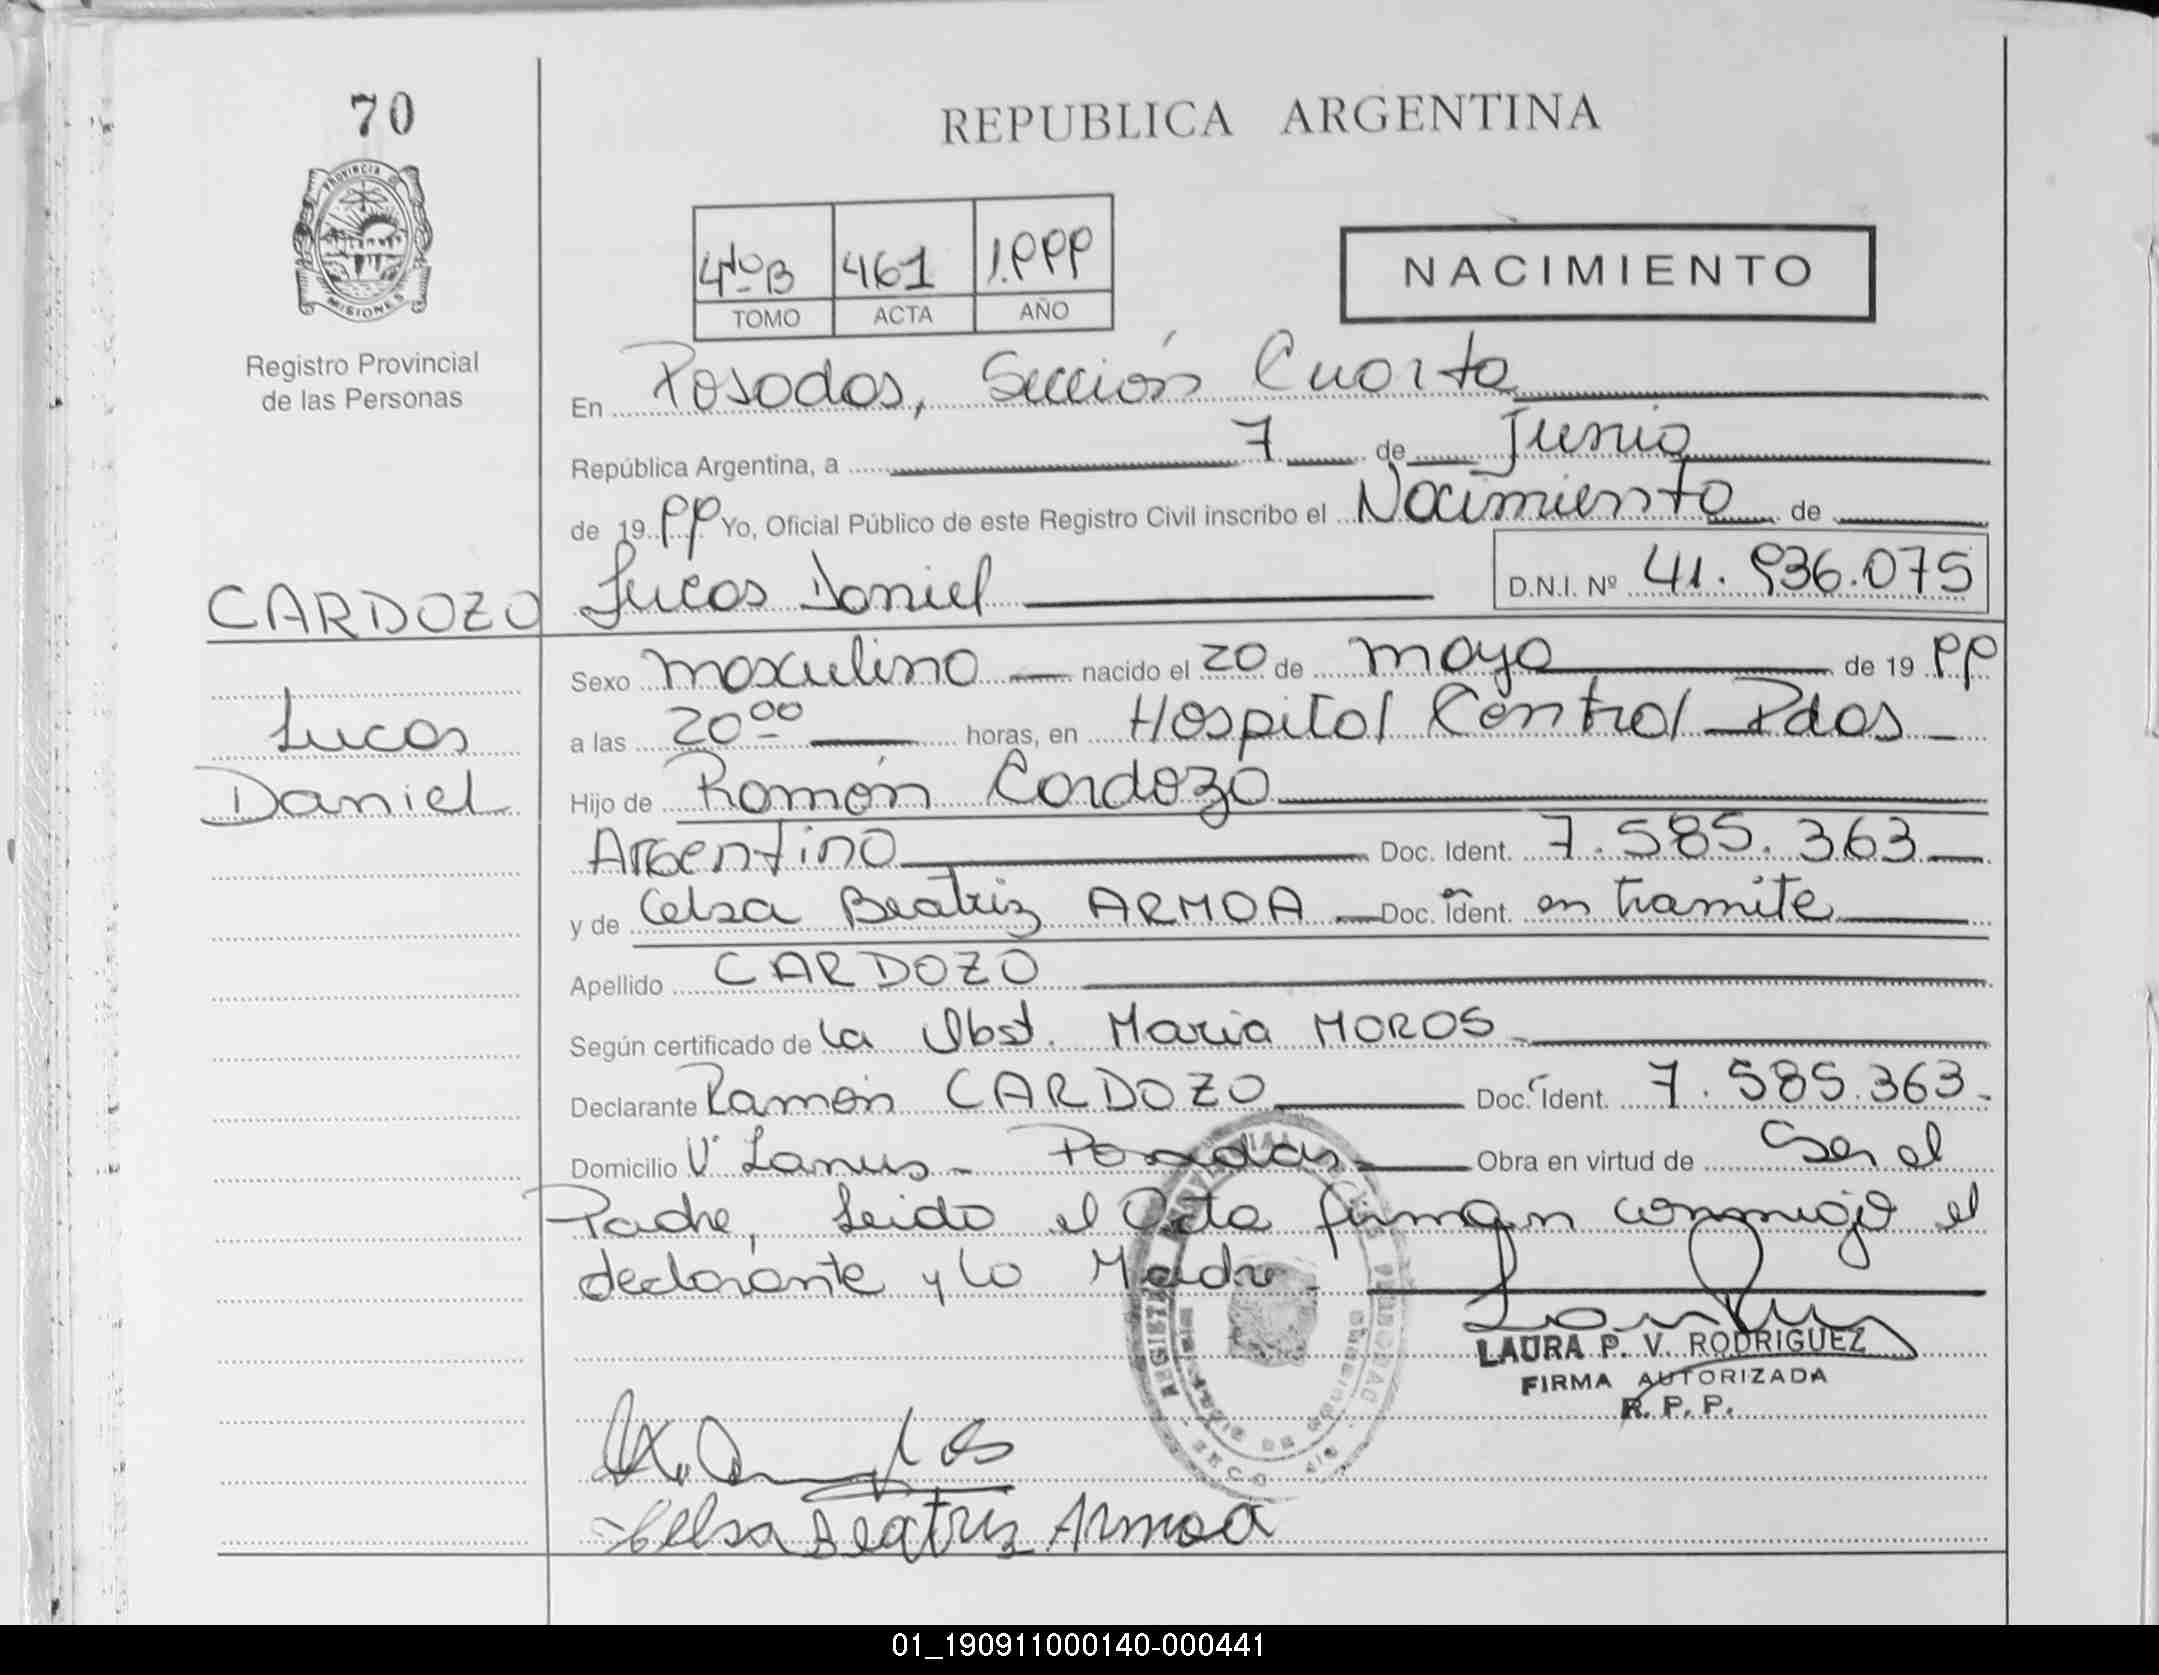 70
REPUBLICA ARGENTINA
PROVINCIA DE
MISIONES
Registro Provincial
de las Personas
4to B 461 1.999
TOMO ACTA AÑO
NACIMIENTO
En Posadas, Sección Cuarta
República Argentina, a 7 de Junio
de 1999 Yo, Oficial Público de este Registro Civil inscribo el Nacimiento de
CARDOZO Lucas Daniel D.N.I. Nº 41.936.075
Sexo masculino nacido el 20 de mayo de 1999
Lucas
a las 20⁰⁰ horas, en Hospital Central Pdas
Daniel
Hijo de Ramón Cardozo
Argentino Doc. Ident. 7.585.363
y de Celsa Beatriz ARMOA Doc. Ident. en tramite
Apellido CARDOZO
Según certificado de la Obst. Maria MOROS
Declarante Ramón CARDOZO Doc. Ident. 7.585.363
Domicilio Vª Lanus - Posadas Obra en virtud de Ser el
Padre, Leido el Acta firman conmigo el
declarante y la Madre
LAURA P. V. RODRIGUEZ
FIRMA AUTORIZADA
R. P. P.
Celsa Beatriz Armoa
01_190911000140-000441